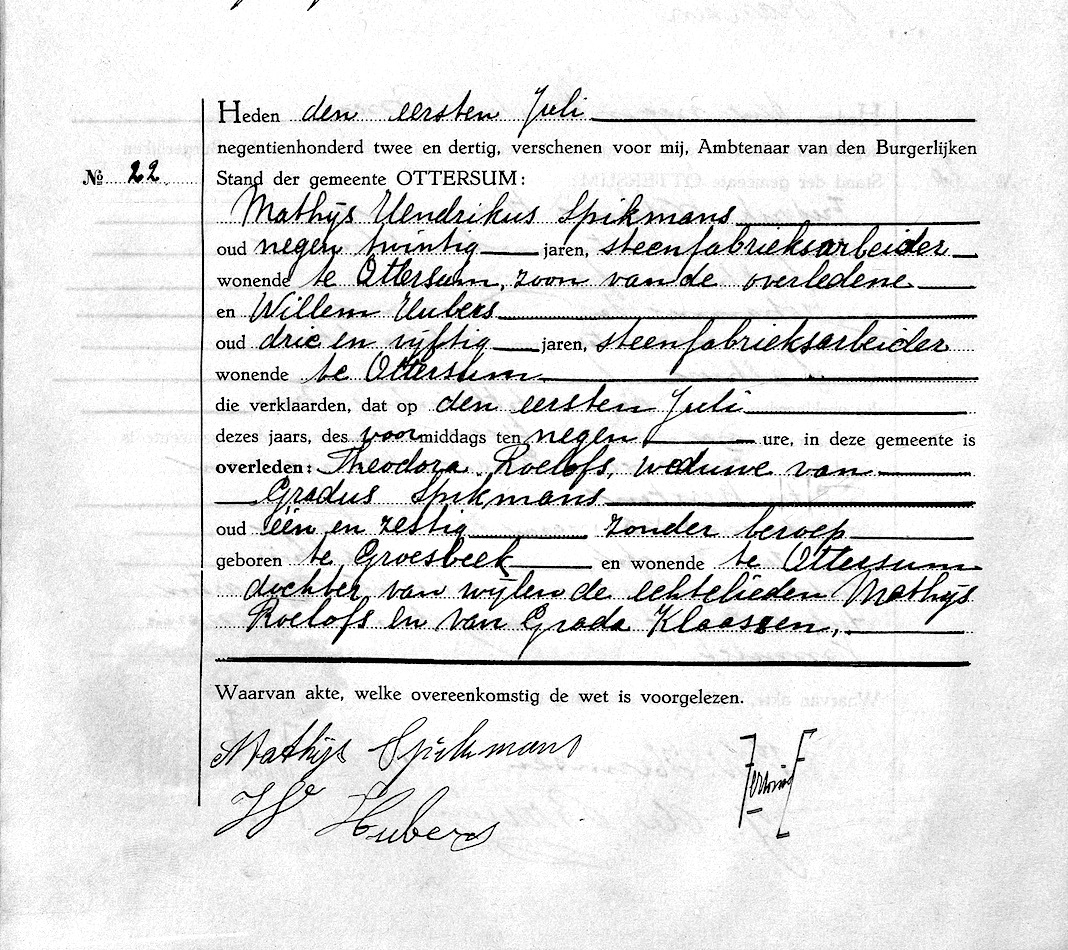 Heden den eersten Juli
negentienhonderd twee en dertig, verschenen voor mij, Ambtenaar van den Burgerlijken
№ 22 Stand der gemeente OTTERSUM:
Mathijs Hendrikus Spikmans
oud negen twintig jaren, steenfabrieksarbeider
wonende te Ottersum, zoon van de overledene
en Willem Hubers
oud drie en vijftig jaren, steenfabrieksarbeider
wonende te Ottersum
die verklaarden, dat op den eersten Juli
dezes jaars, des voormiddags ten negen ure, in deze gemeente is
overleden: Theodora Roelofs, weduwe van
Gradus Spikmans
oud één en zestig zonder beroep
geboren te Groesbeek en wonende te Ottersum
dochter van wijlen de echtelieden Mathijs
Roelofs en van Grada Klaassen,
Waarvan akte, welke overeenkomstig de wet is voorgelezen.
Mathijs Spikmans
W Hubers